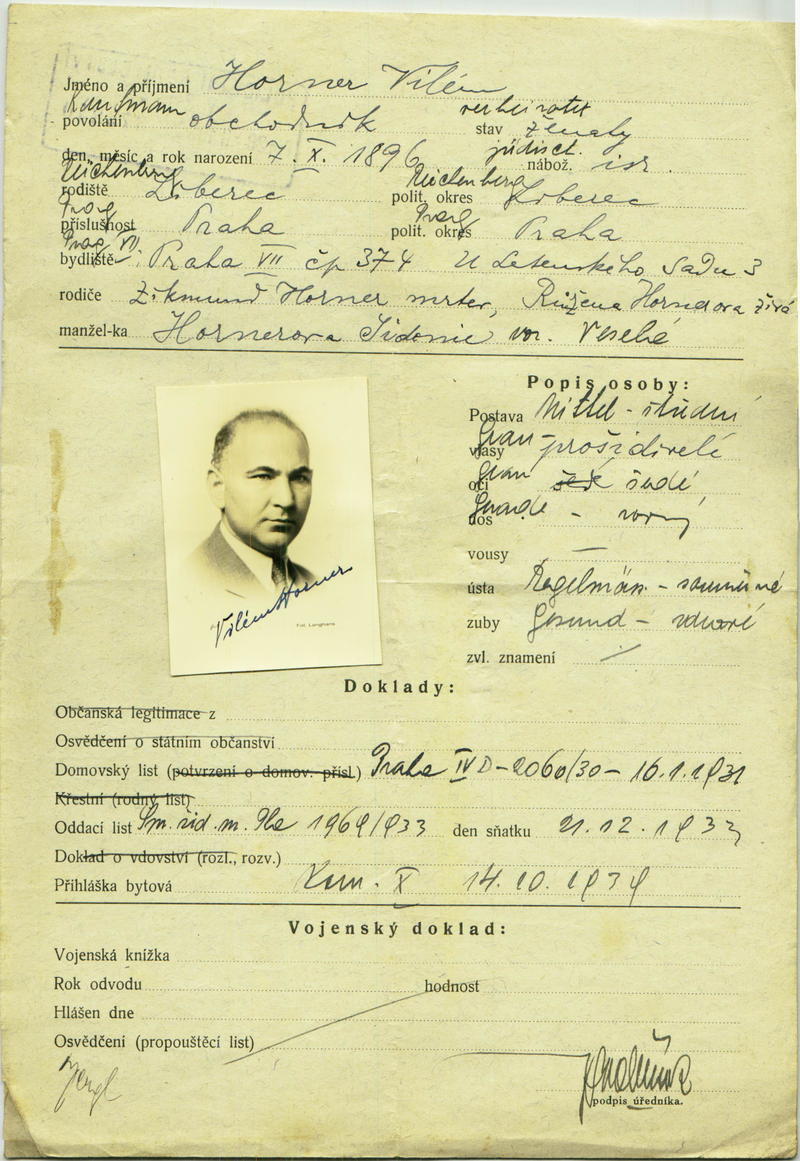 Jméno a příjmení Horner Vilém
Kaufmann verheiratet
povolání obchodník stav ženatý
jüdisch.
den, měsíc a rok narození 7. X. 1896 nábož. isr.
Reichenberg Reichenberg
rodiště Liberec polit. okres Liberec
Prag Prag
příslušnost Praha polit. okres Praha
Prag VII.
bydliště Praha VII čp 374 U Letenského sadu 3
rodiče Zikmund Horner mrtev, Růžena Hornerova živá
manžel-ka Hornerova Sidonie roz. Veselá
Popis osoby:
Postava Mittel - střední
vlasy Grau - prošedivělé
oči Grau šedé
nos Gerade - rovný
vousy —
ústa Regelmäs. - souměrné
zuby Gesund - zdravé
zvl. znamení
Vilém Horner
Fot. Langhans
Doklady:
Občanská legitimace z
Osvědčení o státním občanství
Domovský list (potvrzení o domov. přísl.) Praha IV D - 2060/30 - 16.1.1931
Křestní (rodný list)
Oddací list m. 1969/933 den sňatku 21.12.1933
Doklad o vdovství (rozl., rozv.)
Přihláška bytová Kom. X 14.10.1939
Vojenský doklad:
Vojenská knížka
Rok odvodu hodnost
Hlášen dne
Osvědčení (propouštěcí list)
podpis úředníka.